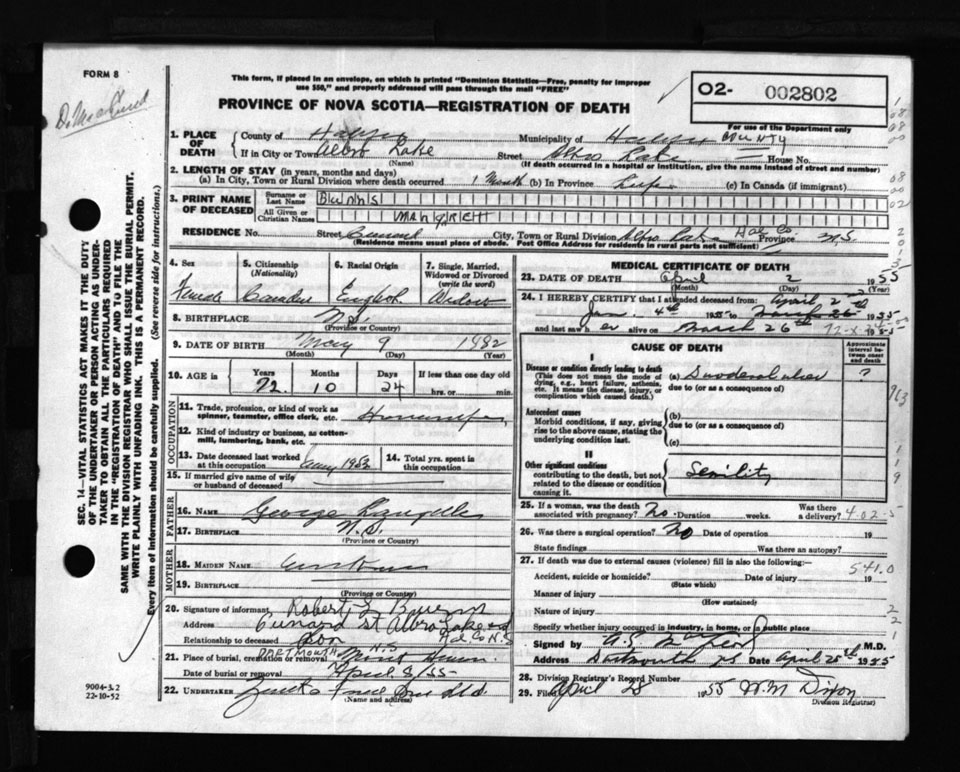 FORM 8
This form, if placed in an envelope, on which is printed "Dominion Statistics—Free, penalty for improper
use $50," and properly addressed will pass through the mail "FREE"
PROVINCE OF NOVA SCOTIA—REGISTRATION OF DEATH
O2- 002802
For use of the Department only
1. PLACE OF DEATH County of Halifax Municipality of Halifax COUNTY
If in City or Town Albro Lake (Name) Street Albro Lake House No.
(If death occurred in a hospital or institution, give the name instead of street and number)
2. LENGTH OF STAY (in years, months and days)
(a) In City, Town or Rural Division where death occurred 1 Month (b) In Province Life (c) In Canada (if immigrant)
3. PRINT NAME OF DECEASED
Surname or Last Name
All Given or Christian Names
RESIDENCE No. Street Cunard City, Town or Rural Division Albro Lake Hal Co. Province N.S.
(Residence means usual place of abode. Post Office Address for residents in rural parts not sufficient)
4. Sex
Female
5. Citizenship (Nationality)
6. Racial Origin
English
7. Single, Married, Widowed or Divorced (write the word)
Widow
8. BIRTHPLACE N.S. (Province or Country)
9. DATE OF BIRTH May 9 (Month) (Day) (Year)
10. AGE in Years Months Days If less than one day old
72 10 24 hrs. or min.
OCCUPATION
11. Trade, profession, or kind of work as spinner, teamster, office clerk, etc. Housewife
12. Kind of industry or business, as cotton-mill, lumbering, bank, etc.
13. Date deceased last worked at this occupation
14. Total yrs. spent in this occupation
15. If married give name of wife or husband of deceased
FATHER
16. NAME George
17. BIRTHPLACE N.S. (Province or Country)
MOTHER
18. MAIDEN NAME
19. BIRTHPLACE (Province or Country)
20. Signature of informant Robert L
Address Cunard St Albro Lake Rd
Hal Co N.S
Relationship to deceased Son
21. Place of burial, cremation or removal DARTMOUTH N.S. Mount Hermon
Date of burial or removal April /55
22. UNDERTAKER (Name and address)
MEDICAL CERTIFICATE OF DEATH
23. DATE OF DEATH April 2 1955
(Month) (Day) (Year)
24. I HEREBY CERTIFY that I attended deceased from: April 2nd
Jan. 4th 1955 to March 26th 1955
and last saw her alive on March 26th 1955
CAUSE OF DEATH
Approximate interval between onset and death
I
Disease or condition directly leading to death
(This does not mean the mode of dying, e.g., heart failure, asthenia, etc. It means the disease, injury, or complication which caused death.)
(a) Duodenal ulcer ?
due to (or as a consequence of)
Antecedent causes
Morbid conditions, if any, giving rise to the above cause, stating the underlying condition last.
(b)
due to (or as a consequence of)
(c)
II
Other significant conditions
contributing to the death, but not related to the disease or condition causing it.
Senility
25. If a woman, was the death associated with pregnancy? No Duration weeks. Was there a delivery?
26. Was there a surgical operation? No Date of operation 19
State findings Was there an autopsy?
27. If death was due to external causes (violence) fill in also the following:—
541.0
Accident, suicide or homicide? (State which) Date of injury 19
Manner of injury (How sustained)
Nature of injury
Specify whether injury occurred in industry, in home, or in public place
Signed by M.D.
Address Dartmouth NS Date April 25th 1955
28. Division Registrar's Record Number
29. Filed April 28 1955 W.M Dixon
Division Registrar
SEC. 14—VITAL STATISTICS ACT MAKES IT THE DUTY
OF THE UNDERTAKER OR PERSON ACTING AS UNDER-
TAKER TO OBTAIN ALL THE PARTICULARS REQUIRED
IN THE "REGISTRATION OF DEATH" AND TO FILE THE
SAME WITH THE DIVISION REGISTRAR WHO SHALL ISSUE THE BURIAL PERMIT.
WRITE PLAINLY WITH UNFADING INK. THIS IS A PERMANENT RECORD.
Every item of information should be carefully supplied. (See reverse side for instructions.)
9004-3.2
22-10-52